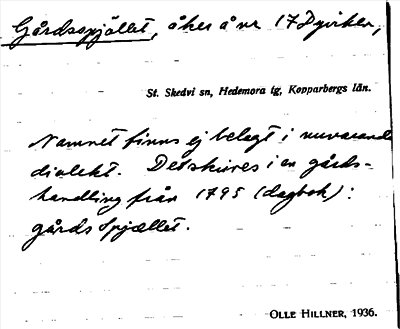 Gårdsspjället, åker å nr 17 Dyviken,
St. Skedvi sn, Hedemora tg, Kopparbergs län.
Namnet finns ej belagt i nuvarande
dialekt. Det skrives i en gårds-
handling från 1795 (dagbok):
gårds Spjællet.
OLLE HILLNER, 1936.